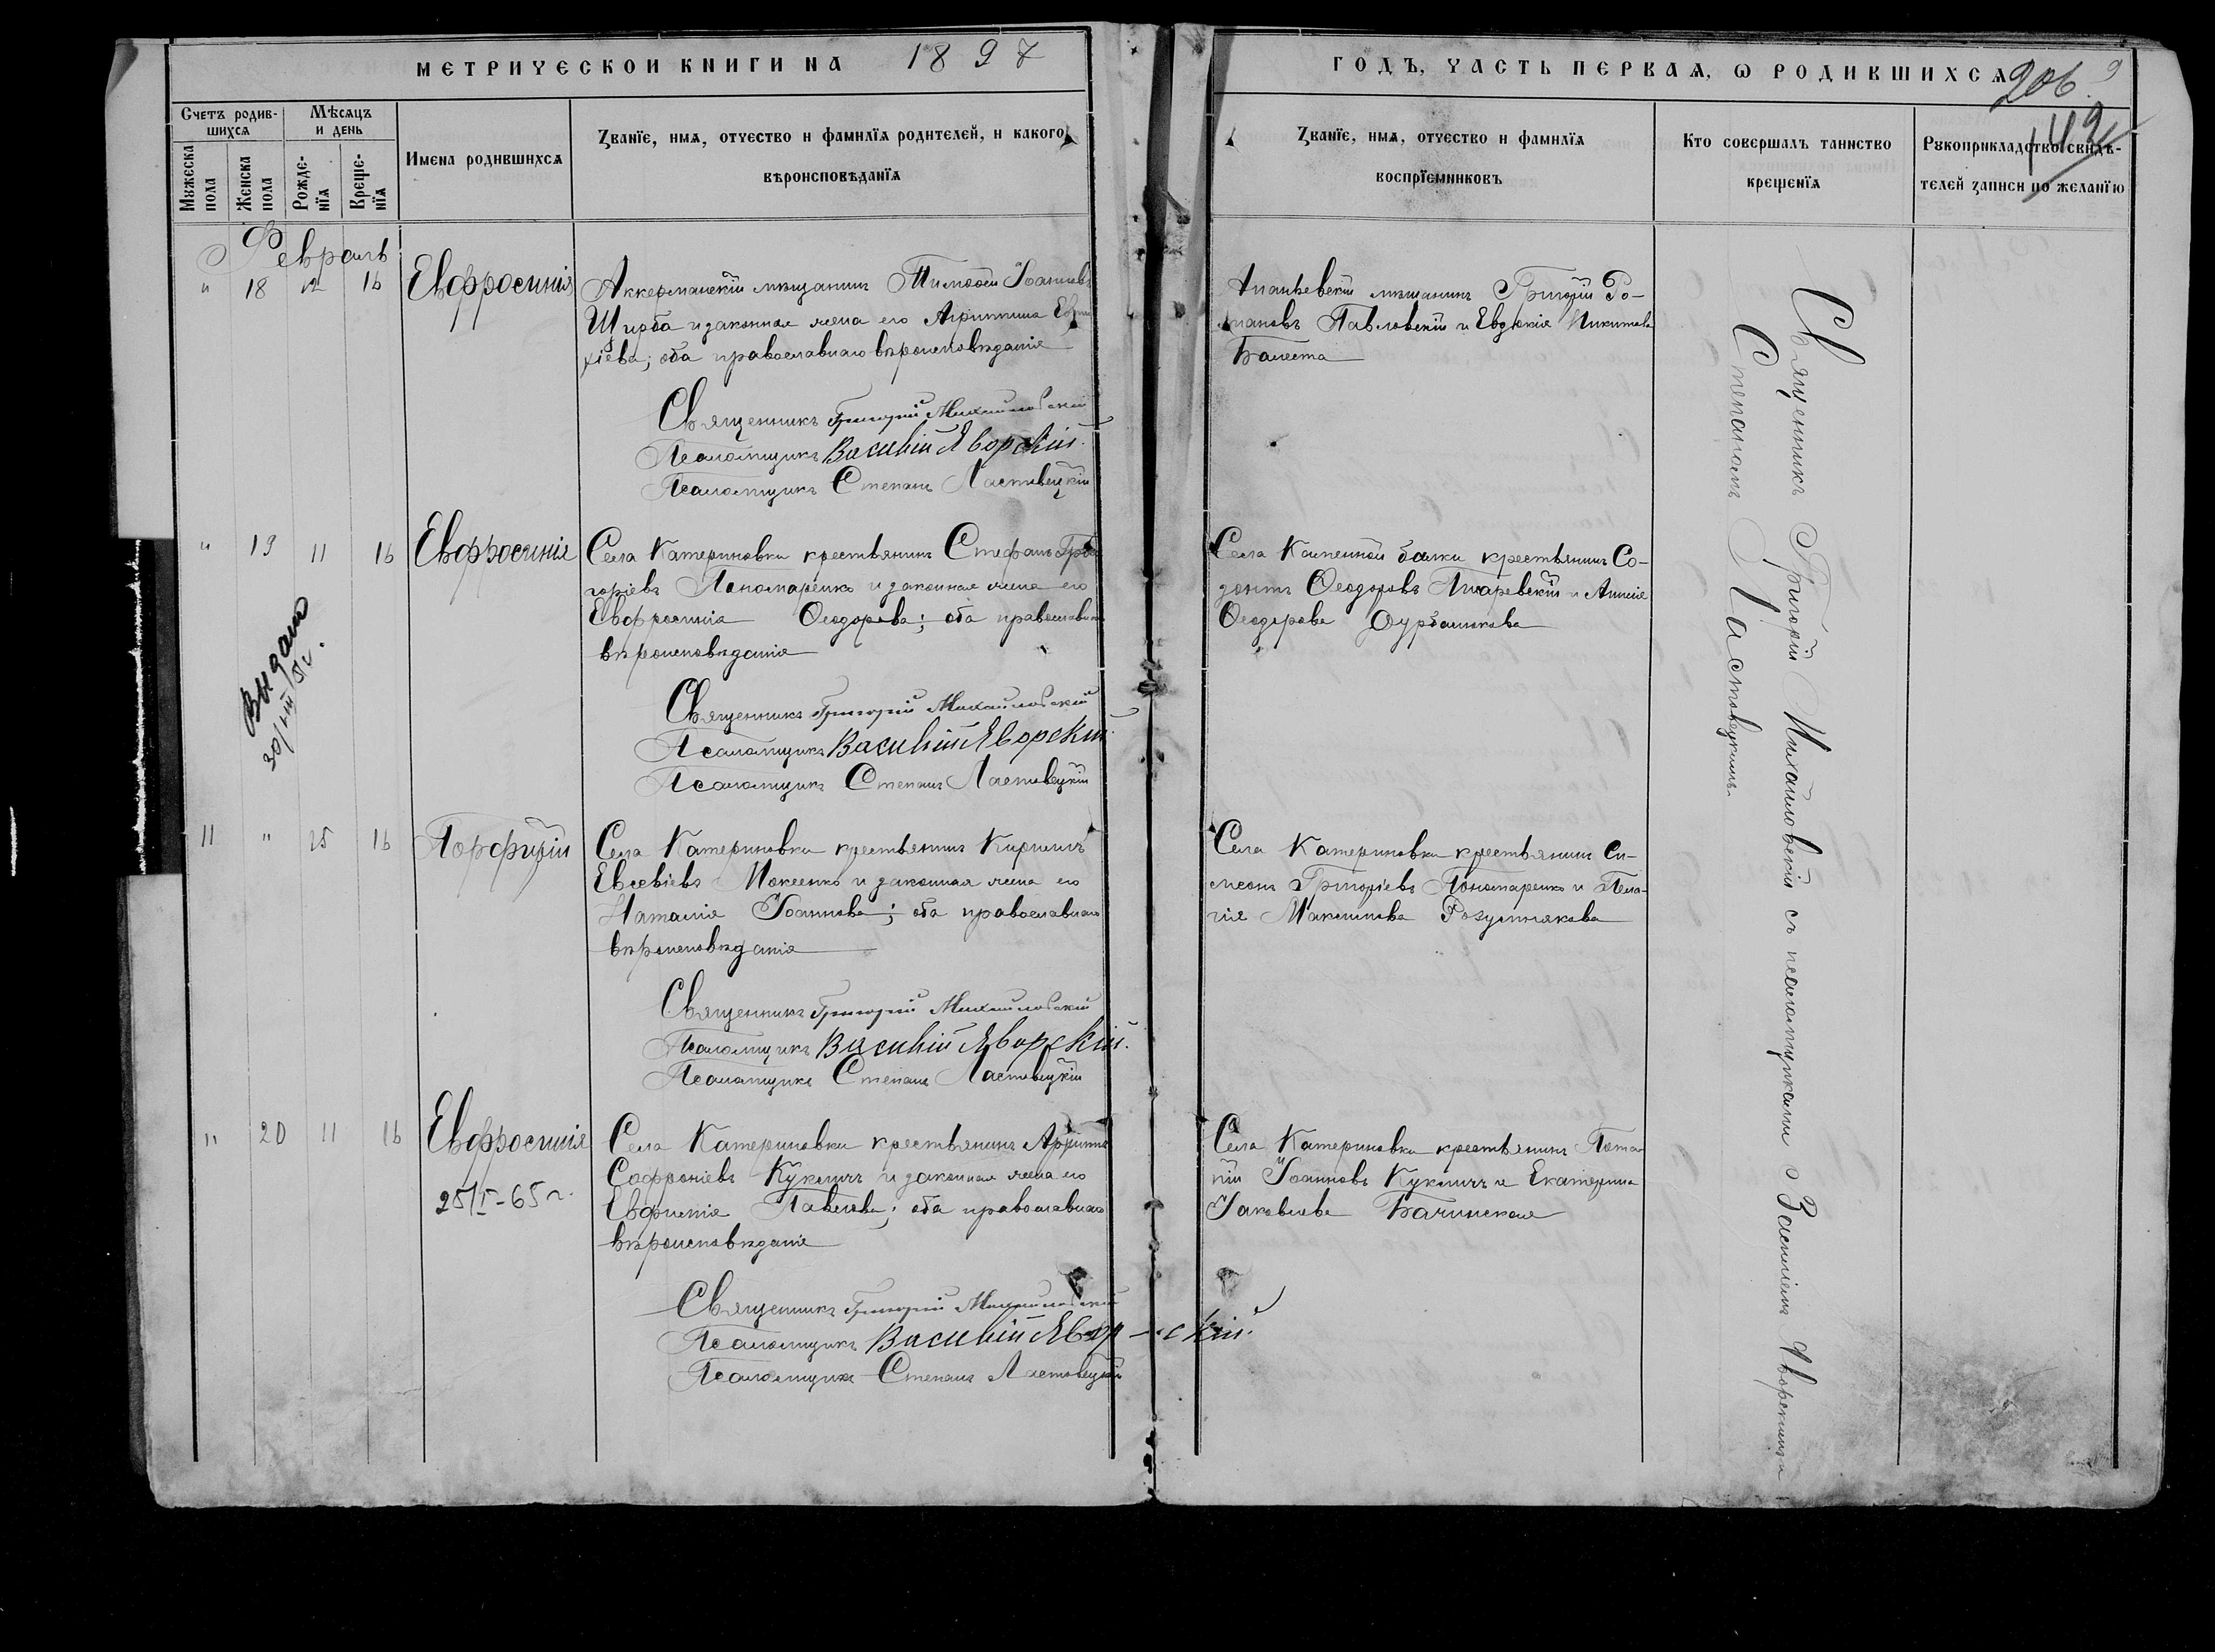 МЕТРИЧЕСКОЙ КНИГИ НА 1897
ГОДЪ, ЧАСТЬ ПЕРВАЯ, Ѡ РОДИВШИХСЯ
206. 9
142
Счетъ родившихся
Мѣсяцъ и день
Мужеска пола
Женска пола
Рожденїя
Крещенїя
Имена родившихся
Званїе, имя, отчество и фамилїя родителей, и какого
вѣроисповѣданїя
Званїе, имя, отчество и фамилїя
воспрїемниковъ
Кто совершалъ таинство
крещенїя
Рукоприкладство свидѣ-
телей записи по желанїю
Февраль
" 18 12 16 Евфросинія
Аккерманскій мѣщанинъ Тимоѳей Іоанновъ
и законная жена его Агрипина
хіева; оба православнаго вѣроисповѣданія
Священникъ Григорій Михайловскій
Псаломщикъ Василій Яворскій.
Псаломщикъ Степанъ Ластовецкій
Ананьевскій мѣщанинъ Григорій Ро-
мановъ Павловскій и Евдокія Никитова
Балеста
" 19 11 16 Евфросинія
Выдано
30/VIII 51 г.
Села Катериновки крестьянинъ Стефанъ Гри-
горіевъ Пономаренко и законная жена его
Евфросинія Ѳеодорова; оба православнаго
вѣроисповѣданія
Священникъ Григорій Михайловскій
Псаломщикъ Василій Яворскій.
Псаломщикъ Степанъ Ластовецкій
Села Каменной балки крестьянинъ Со-
зонтъ Ѳеодоровъ и Анна
Ѳеодорова
11 " 15 16 Порфирій
Села Катериновки крестьянинъ Кириллъ
Евсевіевъ Мокеенко и законная жена его
Наталія Іоаннова; оба православнаго
вѣроисповѣданія
Священникъ Григорій Михайловскій
Псаломщикъ Василій Яворскій.
Псаломщикъ Степанъ Ластовецкій
Села Катериновки крестьянинъ Си-
меонъ Григоріевъ Пономаренко и Пела-
гія Максимова
" 20 11 16 Евфросинія
25/I-65 г.
Села Катериновки крестьянинъ
Софроніевъ Кукличъ и законная жена его
Евфимія Павлова; оба православнаго
вѣроисповѣданія
Священникъ Григорій Михайловскій
Псаломщикъ Василій Яворскій.
Псаломщикъ Степанъ Ластовецкій
Села Катериновки крестьянинъ Пота-
пій Іоанновъ Кукличъ и Екатерина
Іаковлева Бачинская
Священникъ Григорій Михайловскій съ псаломщиками Василіемъ Яворскимъ и
Степаномъ Ластовецкимъ.